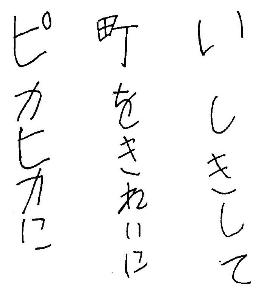 いしきして
町をきれいに
ピカピカに